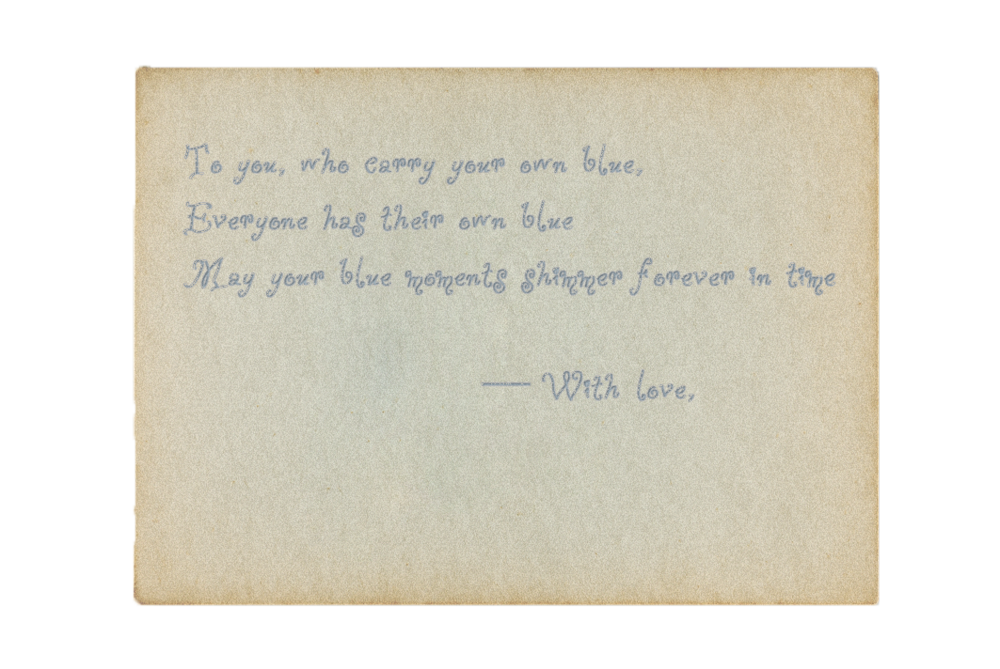 To you, who carry your own blue,
Everyone has their own blue
May your blue moments shimmer forever in time
— With love,